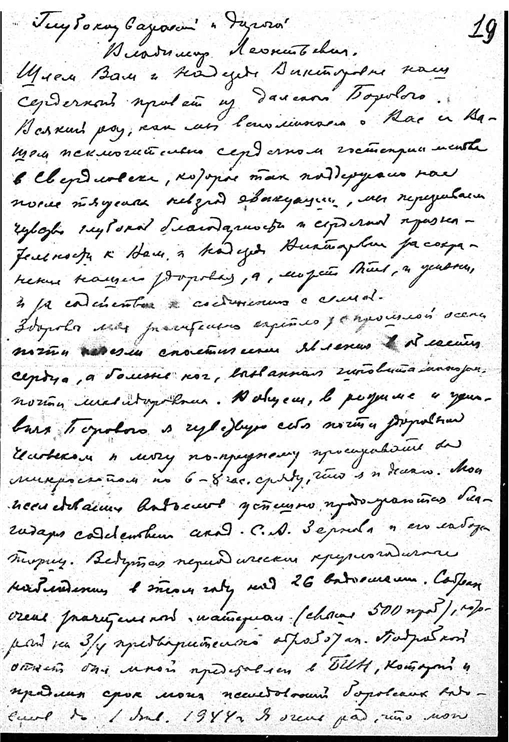 19
Глубокоуважаемый и дорогой
Владимир Леонтьевич.
Шлем Вам и Надежде Викторовне наш
сердечный привет из далекого Борового.
Всякий раз, как мы вспоминаем о Вас и Ва-
шем исключительно сердечном гостеприимстве
в Свердловске, которое так поддержало нас
после тяжелых невзгод эвакуации, мы переживаем
чувство глубокой благодарности и сердечной призна-
тельности к Вам и Надежде Викторовне за сохра-
нение нашего здоровья, а, может быть, и жизни,
и за содействие к соединению с семьей.
Здоровье мое значительно окрепло, с прошлой осени
почти исчезли спастические явления в области
сердца, а болезнь ног, вызванная гиповитаминозом,
почти ликвидирована. В общем, в режиме и усло-
виях Борового я чувствую себя почти здоровым
человеком и могу по-прежнему просиживать за
микроскопом по 6-8 час. сряду, что я и делаю. Мои
исследования водоемов успешно продолжаются бла-
годаря содействию акад. С.А. Зернова и его лабора-
тории. Ведутся периодические круглогодичные
наблюдения в этом году над 26 водоемами. Собран
очень значительный материал (свыше 500 проб), кото-
рый на 3/4 предварительно обработан. Подробный
отчет был мной представлен в БИН, который и
продлил срок моих исследований боровских водо-
емов до 1 янв. 1944 г. Я очень рад, что мои